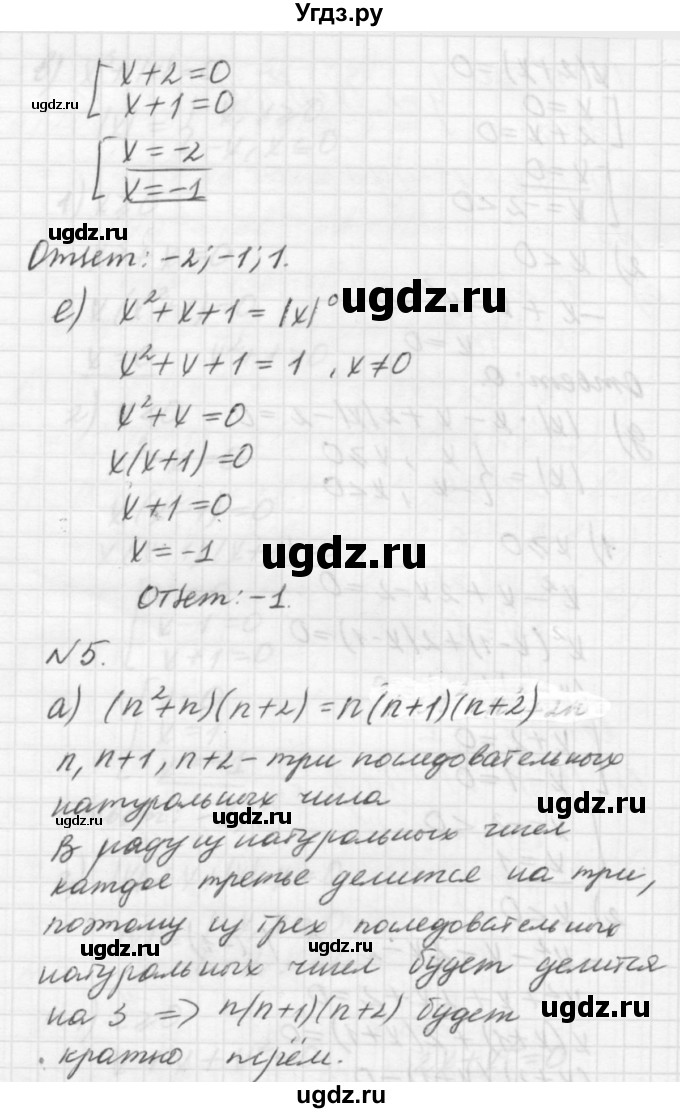 Угдз.ру
x+2=0
ugdz.ru
x+1=0
x=-2
x=-1
ugdz.ru
Ответ: -2; -1; 1.
е) x²+x+1=|x|⁰
ugdz.ru
x²+x+1=1 , x≠0
x²+x=0
x(x+1)=0
x+1=0
x=-1
ugdz.ru
Ответ: -1.
№5.
а) (n²+n)(n+2)=n(n+1)(n+2)
n, n+1, n+2 - три последовательных
натуральных числа
ugdz.ru
ugdz.ru
В ряду из натуральных чисел
каждое третье делится на три,
поэтому из трех последовательных
ugdz.ru
ugdz.ru
натуральных чисел будет делится
на 3 => n(n+1)(n+2) будет
ugdz.ru
кратно трём.
ugdz.ru